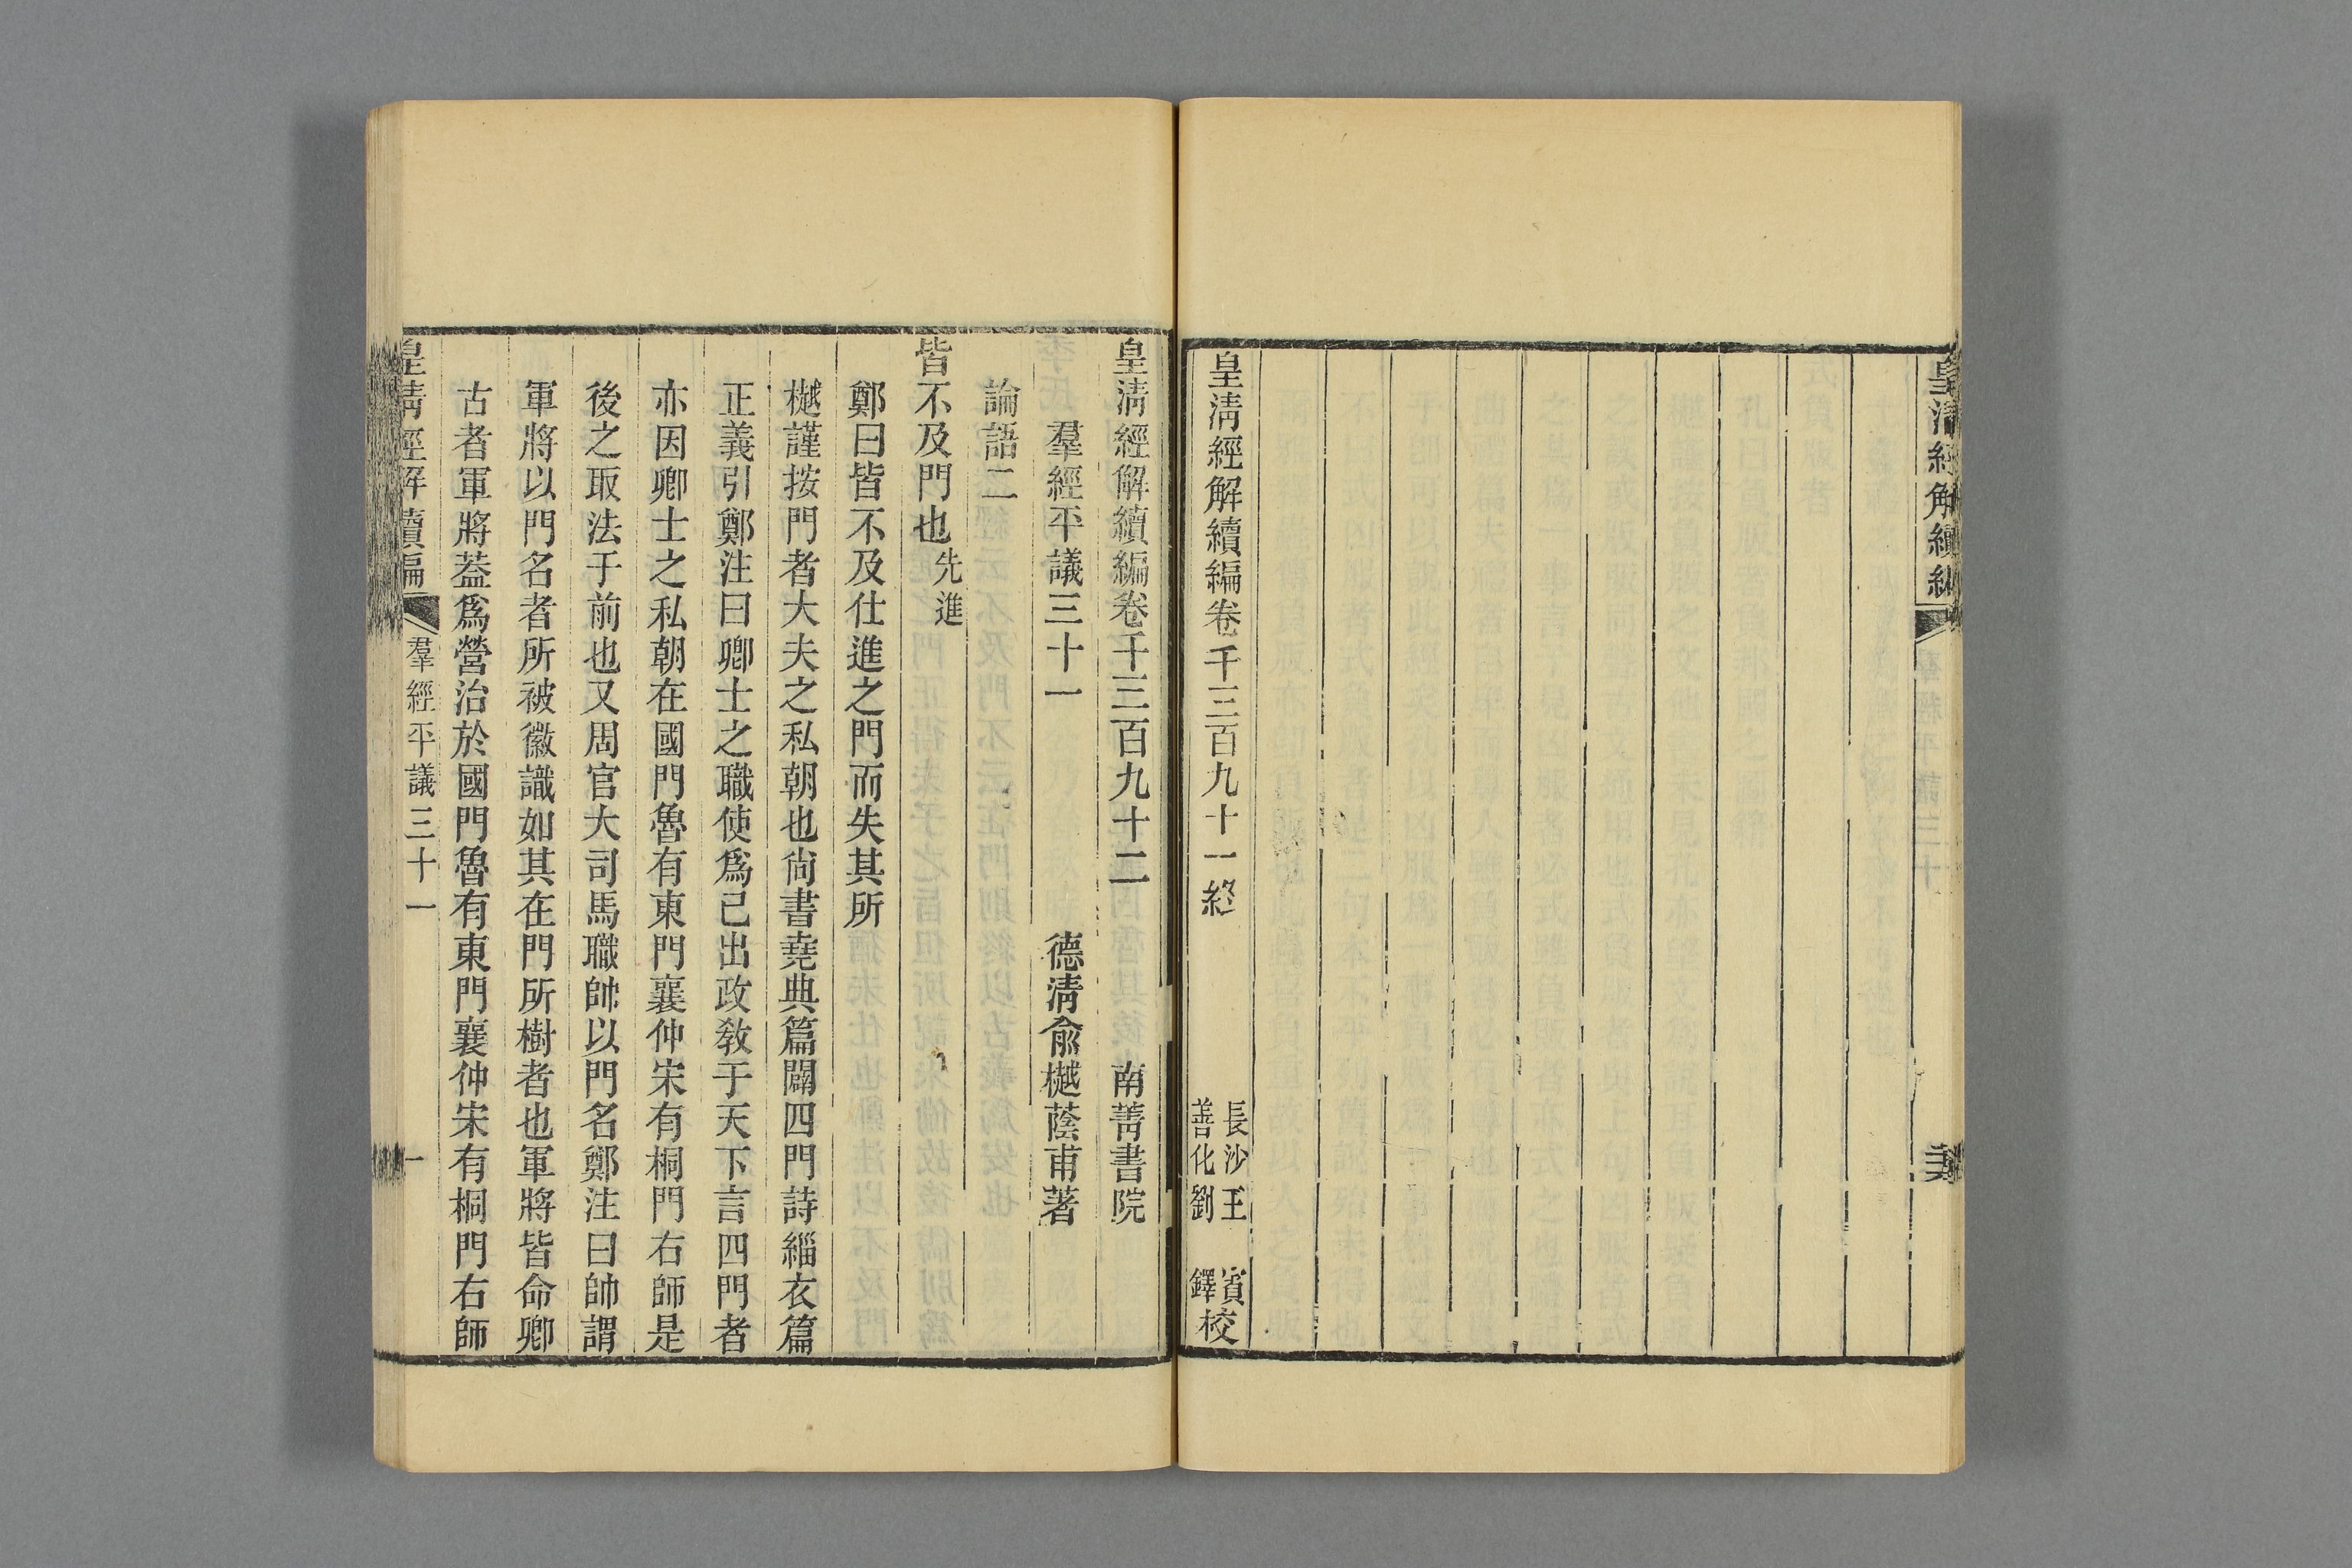 皇清經解續編
皇清經解續編卷千三百九十一終
長沙王
善化劉
賓
鐸
校
皇清經解續編卷千三百九十二 南菁書院
羣經平議三十一 德清俞樾蔭甫著
論語二
皆不及門也先進
鄭曰皆不及仕進之門而失其所
樾謹按門者大夫之私朝也尙書堯典篇闢四門詩緇衣篇
正義引鄭注曰卿士之職使爲己出政敎于天下言四門者
亦因卿士之私朝在國門魯有東門襄仲宋有桐門右師是
後之取法于前也又周官大司馬職帥以門名鄭注曰帥謂
軍將以門名者所被徽識如其在門所樹者也軍將皆命卿
古者軍將葢爲營治於國門魯有東門襄仲宋有桐門右師
皇清經解續編 羣經平議三十一 一